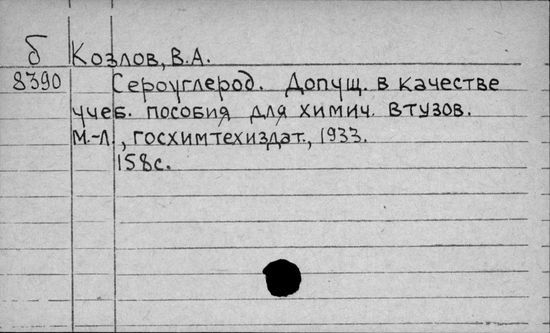 б Козлов, В.А.
8390 Сероуглерод. Допущ. в качестве
учеб. пособия для химич. втузов.
М.-Л., Госхимтехиздат., 1933.
158с.